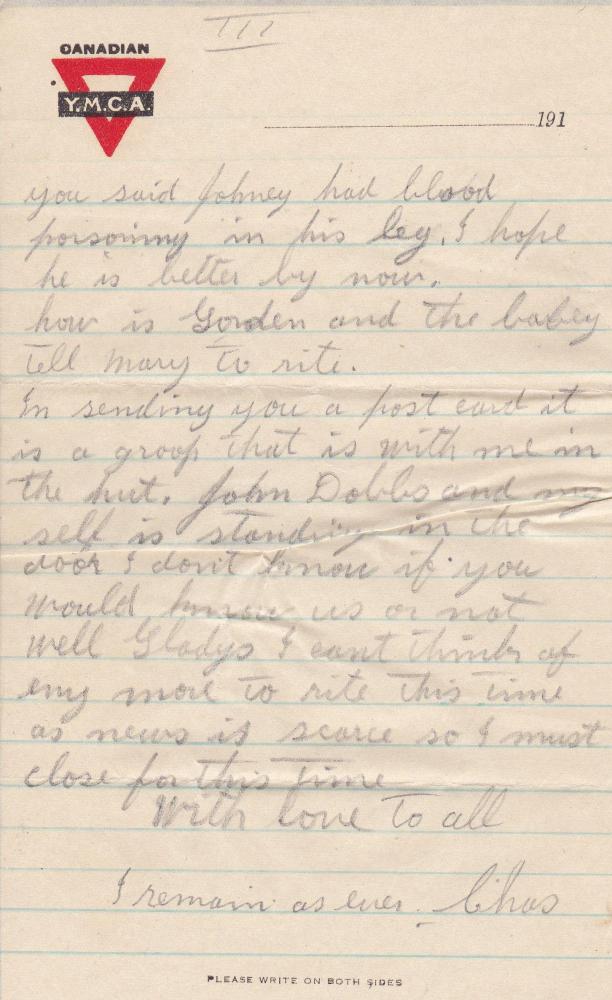 III
CANADIAN
Y.M.C.A.
191
you said Johney had blood
poisoning in his leg. I hope
he is better by now.
how is Gorden and the babey
tell Mary to rite.
Im sending you a post card it
is a groop that is with me in
the hut. John Dobbs and my
self is standing in the
door I don't know if you
would know us or not
well Gladys I cant think of
eny more to rite this time
as news is scarce so I must
close for this time
With love to all
I remain as ever. Chas
PLEASE WRITE ON BOTH SIDES